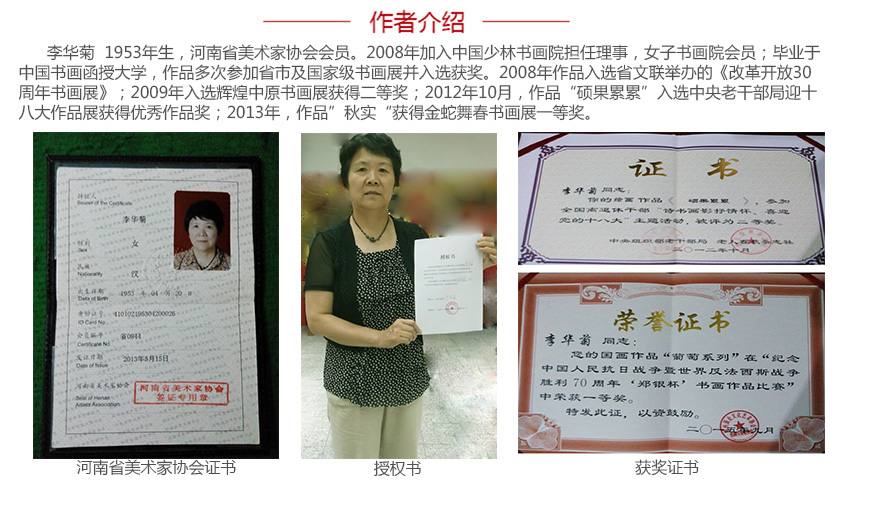 作者介绍
李华菊 1953年生，河南省美术家协会会员。2008年加入中国少林书画院担任理事，女子书画院会员；毕业于
中国书画函授大学，作品多次参加省市及国家级书画展并入选获奖。2008年作品入选省文联举办的《改革开放30
周年书画展》；2009年入选辉煌中原书画展获得二等奖；2012年10月，作品“硕果累累”入选中央老干部局迎十
八大作品展获得优秀作品奖；2013年，作品”秋实“获得金蛇舞春书画展一等奖。
持证人
Bearer of the Certificate
李华菊
性别 女
Sex
民族 汉
Nationality
出生日期 1953 年 04 月 20 日
Date of Birth
身份证号
ID Card No
会员编号
Certificate No
发证日期 2013年8月15日
Date of Issue
河南省美术家协会
Seal of Henan
Artists Association
河南省美术家协会
签证专用章
授权书
证书
李华菊 同志：
你的绘画作品《 硕果累累 》，参加
全国离退休干部“诗书画影抒情怀、喜迎
党的十八大”主题活动，被评为二等奖。
中央组织部老干部局 老人春秋杂志社
二〇一二年十月
荣誉证书
李华菊 同志：
您的国画作品“葡萄系列”在“纪念
中国人民抗日战争暨世界反法西斯战争
胜利70周年‘郑银杯’书画作品比赛”
中荣获一等奖。
特发此证，以资鼓励。
二〇一五年九月
河南省美术家协会证书
授权书
获奖证书